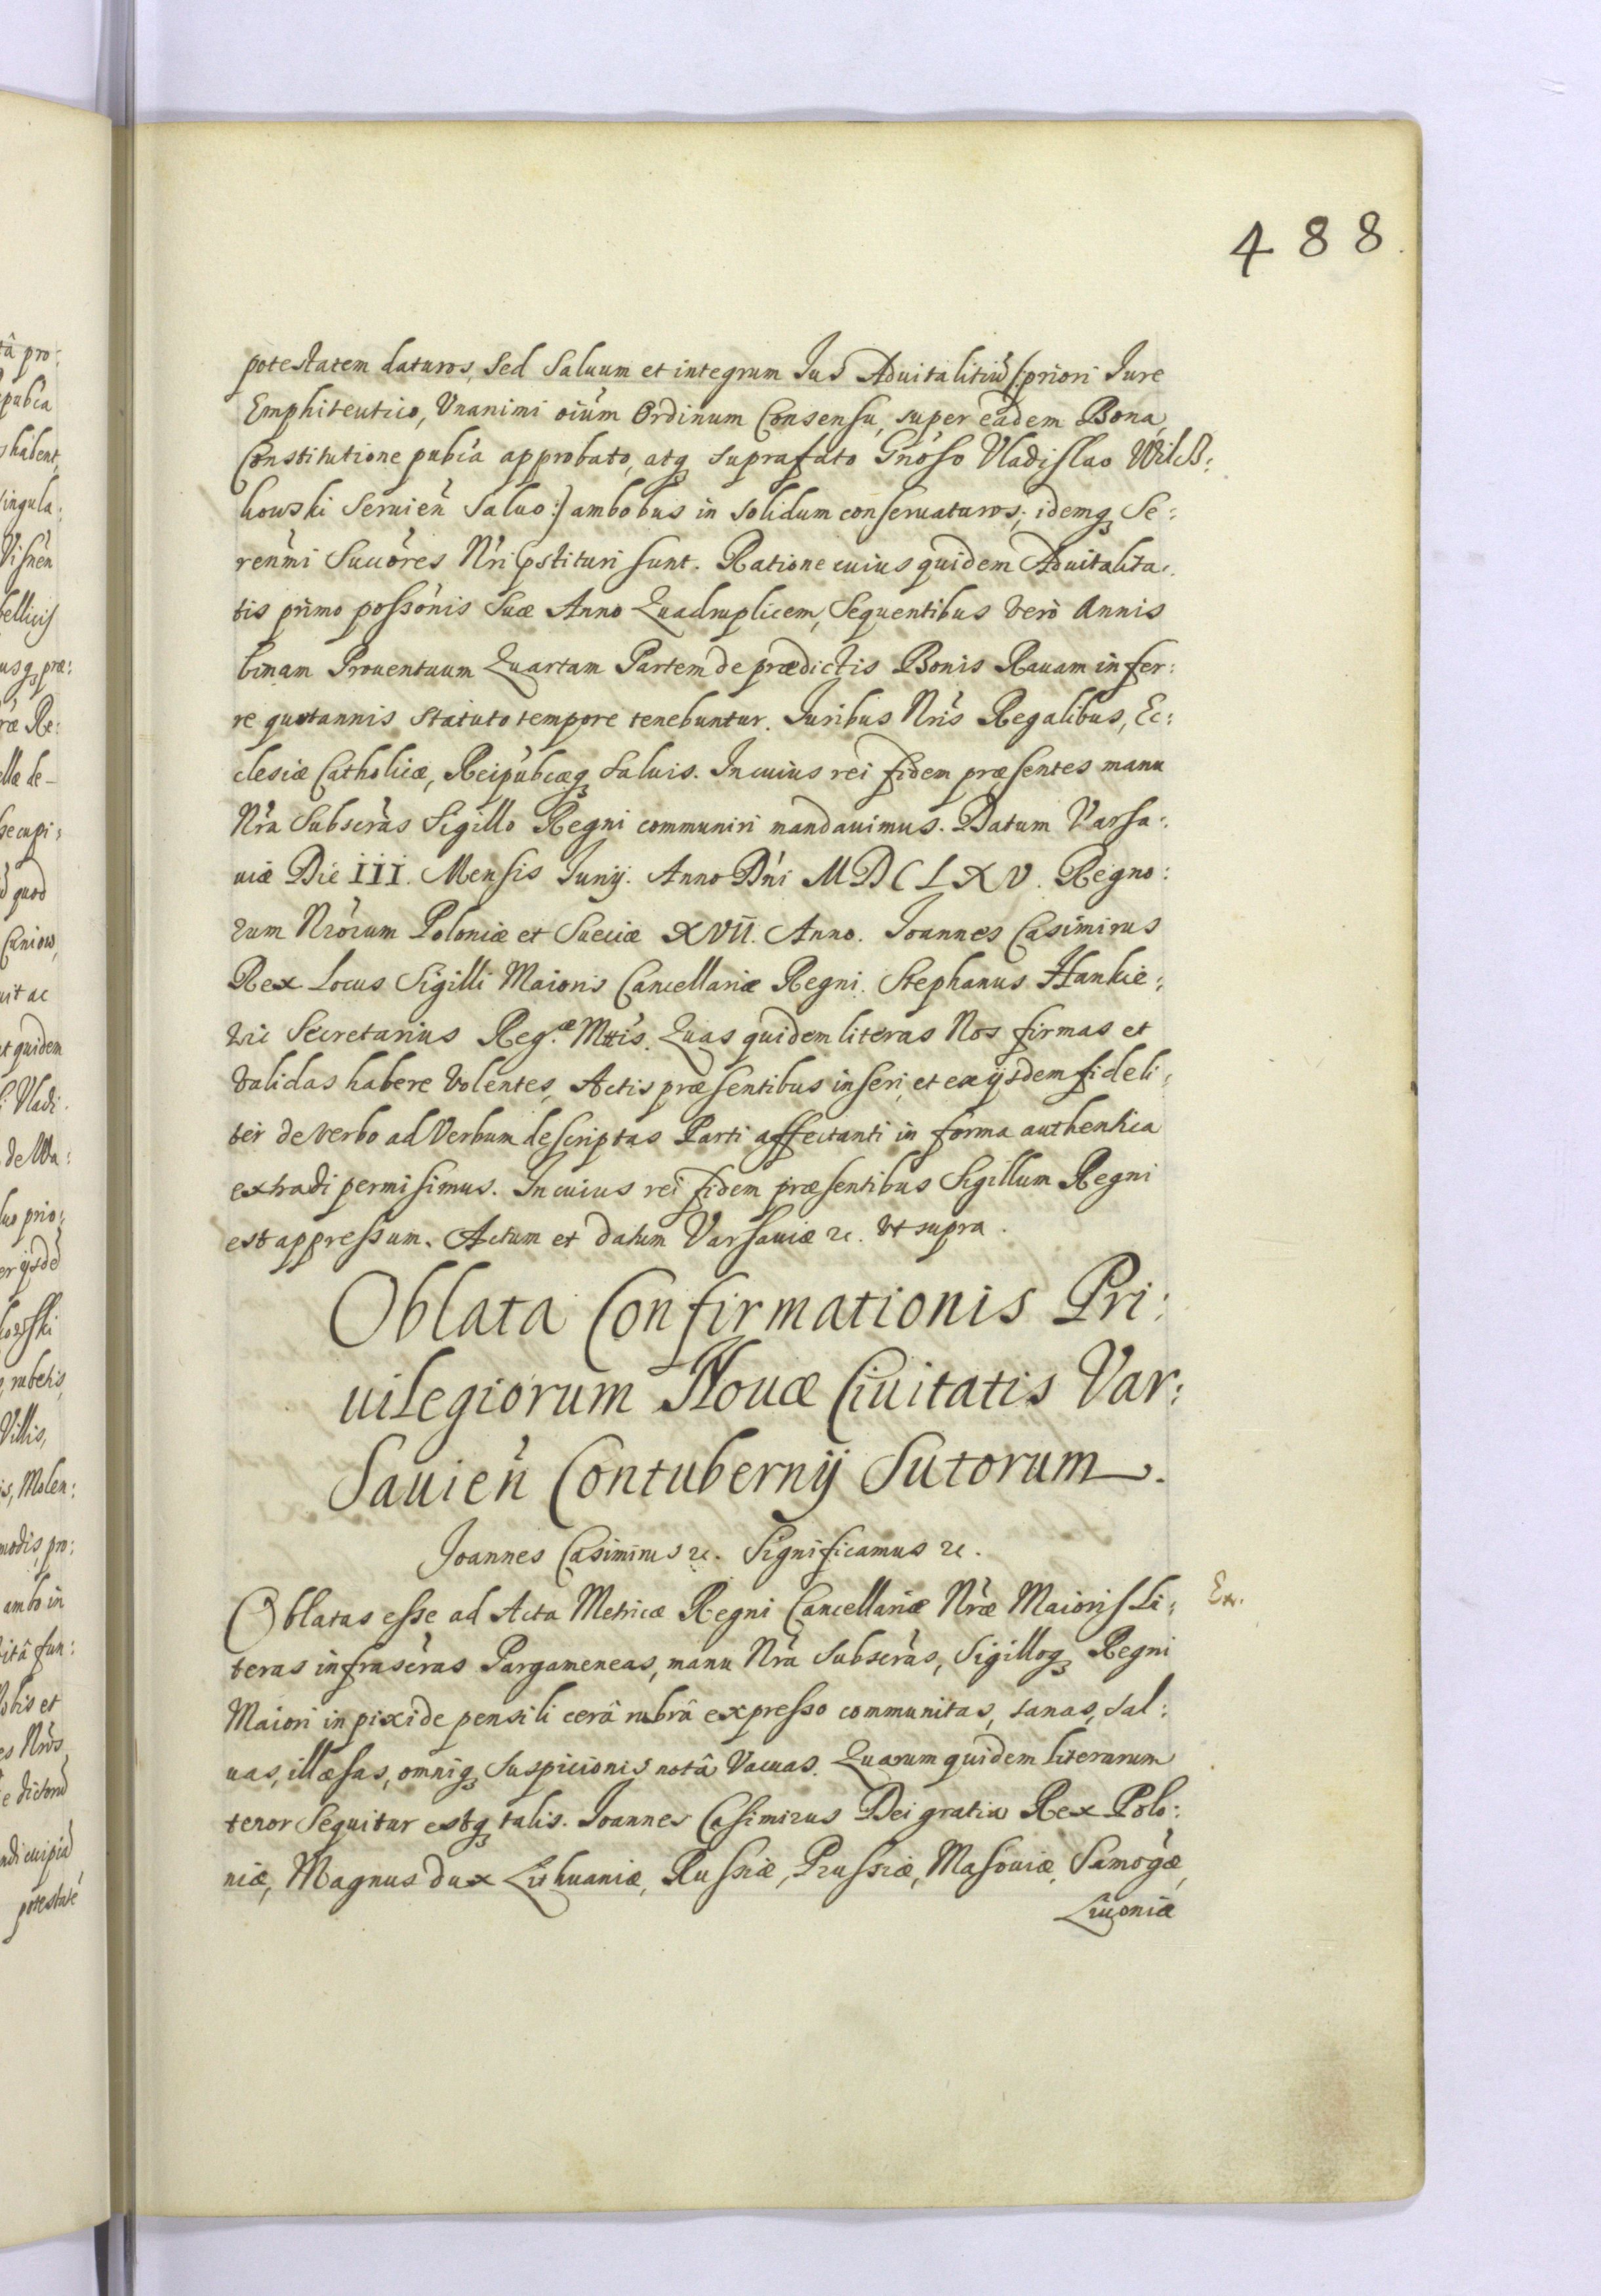 488
potestatem daturos, sed saluum et integrum Ius Aduitalitiũ (:priori Iure
Emphiteutico, Vnanimi oium Ordinum Consensu, super eadem Bona,
Constitutione pubca approbato, atq suprafato Gnoso Vladislao Wilcz:
kowski seruien saluo:) ambobus in solidum conseruaturos; idemq Se:
renmi Succores Nri pstituri sunt. Ratione cuius quidem Aduitalita:
tis primo possonis suæ Anno Quadruplicem, Sequentibus verò Annis
binam Prouentuum Quartam Partem de prædictis Bonis Rauam infer:
re quotannis statuto tempore tenebuntur. Iuribus Nris Regalibus, Ec:
clesiæ Catholicæ, Reipubcæq saluis. In cuius rei fidem præsentes manu
Nra subscras Sigillo Regni communiri mandauimus. Datum Varsa:
uiæ Die III. Mensis Iunij. Anno Dni MDCLXV. Regno:
rum Nrorum Poloniæ et Sueciæ XVII. Anno. Ioannes Casimirus
Rex Locus Sigilli Maioris Cancellariæ Regni. Stephanus Hankie:
wic Secretarius Reg.æ Mttis. Quas quidem literas Nos firmas et
validas habere volentes, Actis præsentibus inseri, et ex ijsdem fideli:
ter de verbo ad Verbum descriptas Parti affectanti in forma authentica
extradi permisimus. In cuius rei fidem præsentibus Sigillum Regni
est appressum. Actum et datum Varsauiæ &c. vt supra.
Oblata Confirmationis Pri:
uilegiorum Nouæ Ciuitatis Var:
sauien Contubernij Sutorum.
Ioannes Casimirus &c. Significamus &c.
Oblatas esse ad Acta Metricæ Regni Cancellariæ Nræ Maioris Li:
Ex.
teras infrascras Pargameneas, manu Nra subscras, Sigilloq Regni
Maiori in pixide pensili cerâ rubrâ expresso communitas, sanas, sal:
uas, illæsas, omniq suspicionis notâ vacuas. Quarum quidem literarum
tenor sequitur estq talis. Ioannes Casimirus Dei gratia Rex Polo:
niæ, Magnus dux Lithuaniæ, Russiæ, Prussiæ, Masouiæ, Samogæ,
Liuoniæ